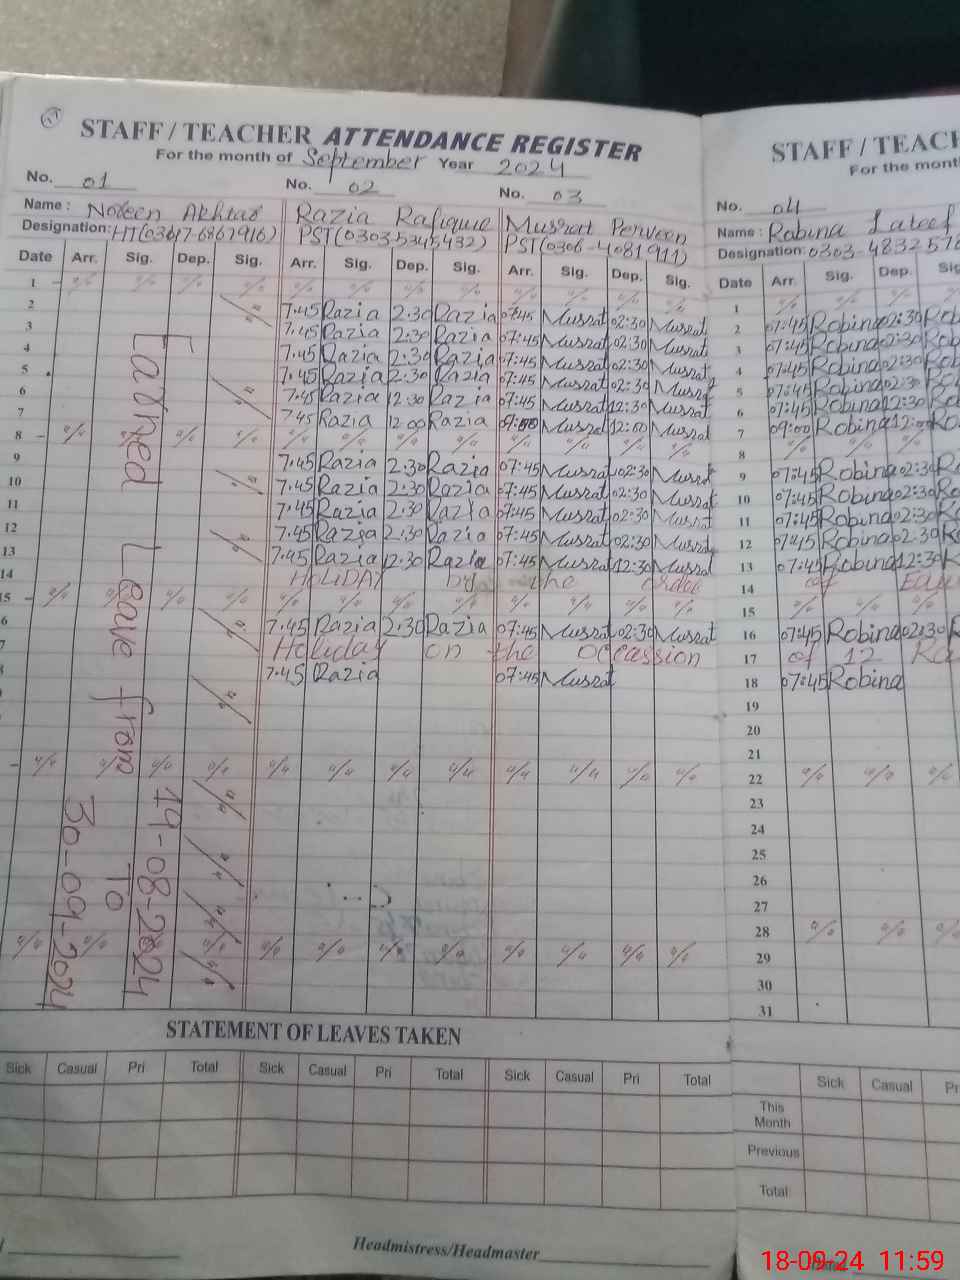 STAFF / TEACHER ATTENDANCE REGISTER
For the month of September Year 2024
No. 01 No. 02 No. 03
Name : Noreen Akhtar Razia Rafique Mussrat Perveen
Designation: HT(03417-6867916) PST(03035345432) PST(0306-4081911)
Date Arr. Sig. Dep. Sig. Arr. Sig. Dep. Sig. Arr. Sig. Dep. Sig.
1
2 7.45 Razia 2.30 Razia 07:45 Musrat 02:30 Musrat
3 7.45 Razia 2.30 Razia 07:45 Musrat 02:30 Musrat
4 7.45 Razia 2.30 Razia 07:45 Musrat 02:30 Musrat
5 7.45 Razia 2.30 Razia 07:45 Musrat 02:30 Musrat
6 7.45 Razia 12:30 Razia 07:45 Musrat 12:30 Musrat
7 7.45 Razia 12.00 Razia 09:00 Musrat 12:00 Musrat
8
9 7.45 Razia 2.30 Razia 07:45 Musrat 02:30 Musrat
10 7.45 Razia 2.30 Razia 07:45 Musrat 02:30 Musrat
11 7.45 Razia 2.30 Razia 07:45 Musrat 02:30 Musrat
12 7.45 Razia 2.30 Razia 07:45 Musrat 02:30 Musrat
13 7.45 Razia 12.30 Razia 07:45 Musrat 12:30 Musrat
14 HOLIDAY by the order
15
6 7.45 Razia 2.30 Razia 07:45 Musrat 02:30 Musrat
7 Holiday on the occassion
8 7.45 Razia 07:45 Musrat
Earned Leave from
19-08-2024
To
30-09-2024
STATEMENT OF LEAVES TAKEN
Sick Casual Pri Total Sick Casual Pri Total Sick Casual Pri Total
Headmistress/Headmaster
STAFF / TEACH
For the month
No. 04
Name : Robina Lateef
Designation: 0303-4832576
Date Arr. Sig. Dep. Sig
1
2 07:45 Robina 02:30 Rob
3 07:45 Robina 02:30 Rob
4 07:45 Robina 02:30 Rob
5 07:45 Robina 02:30 Rob
6 07:45 Robina 12:30 Ro
7 09:00 Robina 12:00 Ro
8
9 07:45 Robina 02:30 R
10 07:45 Robina 02:30 R
11 07:45 Robina 02:30 R
12 07:45 Robina 02:30 R
13 07:45 Robina 12:30 R
14 of
15
16 07:45 Robina 02:30 R
17 of 12
18 07:45 Robina
19
20
21
22
23
24
25
26
27
28
29
30
31
Sick Casual Pr
This Month
Previous
Total
18-09-24 11:59